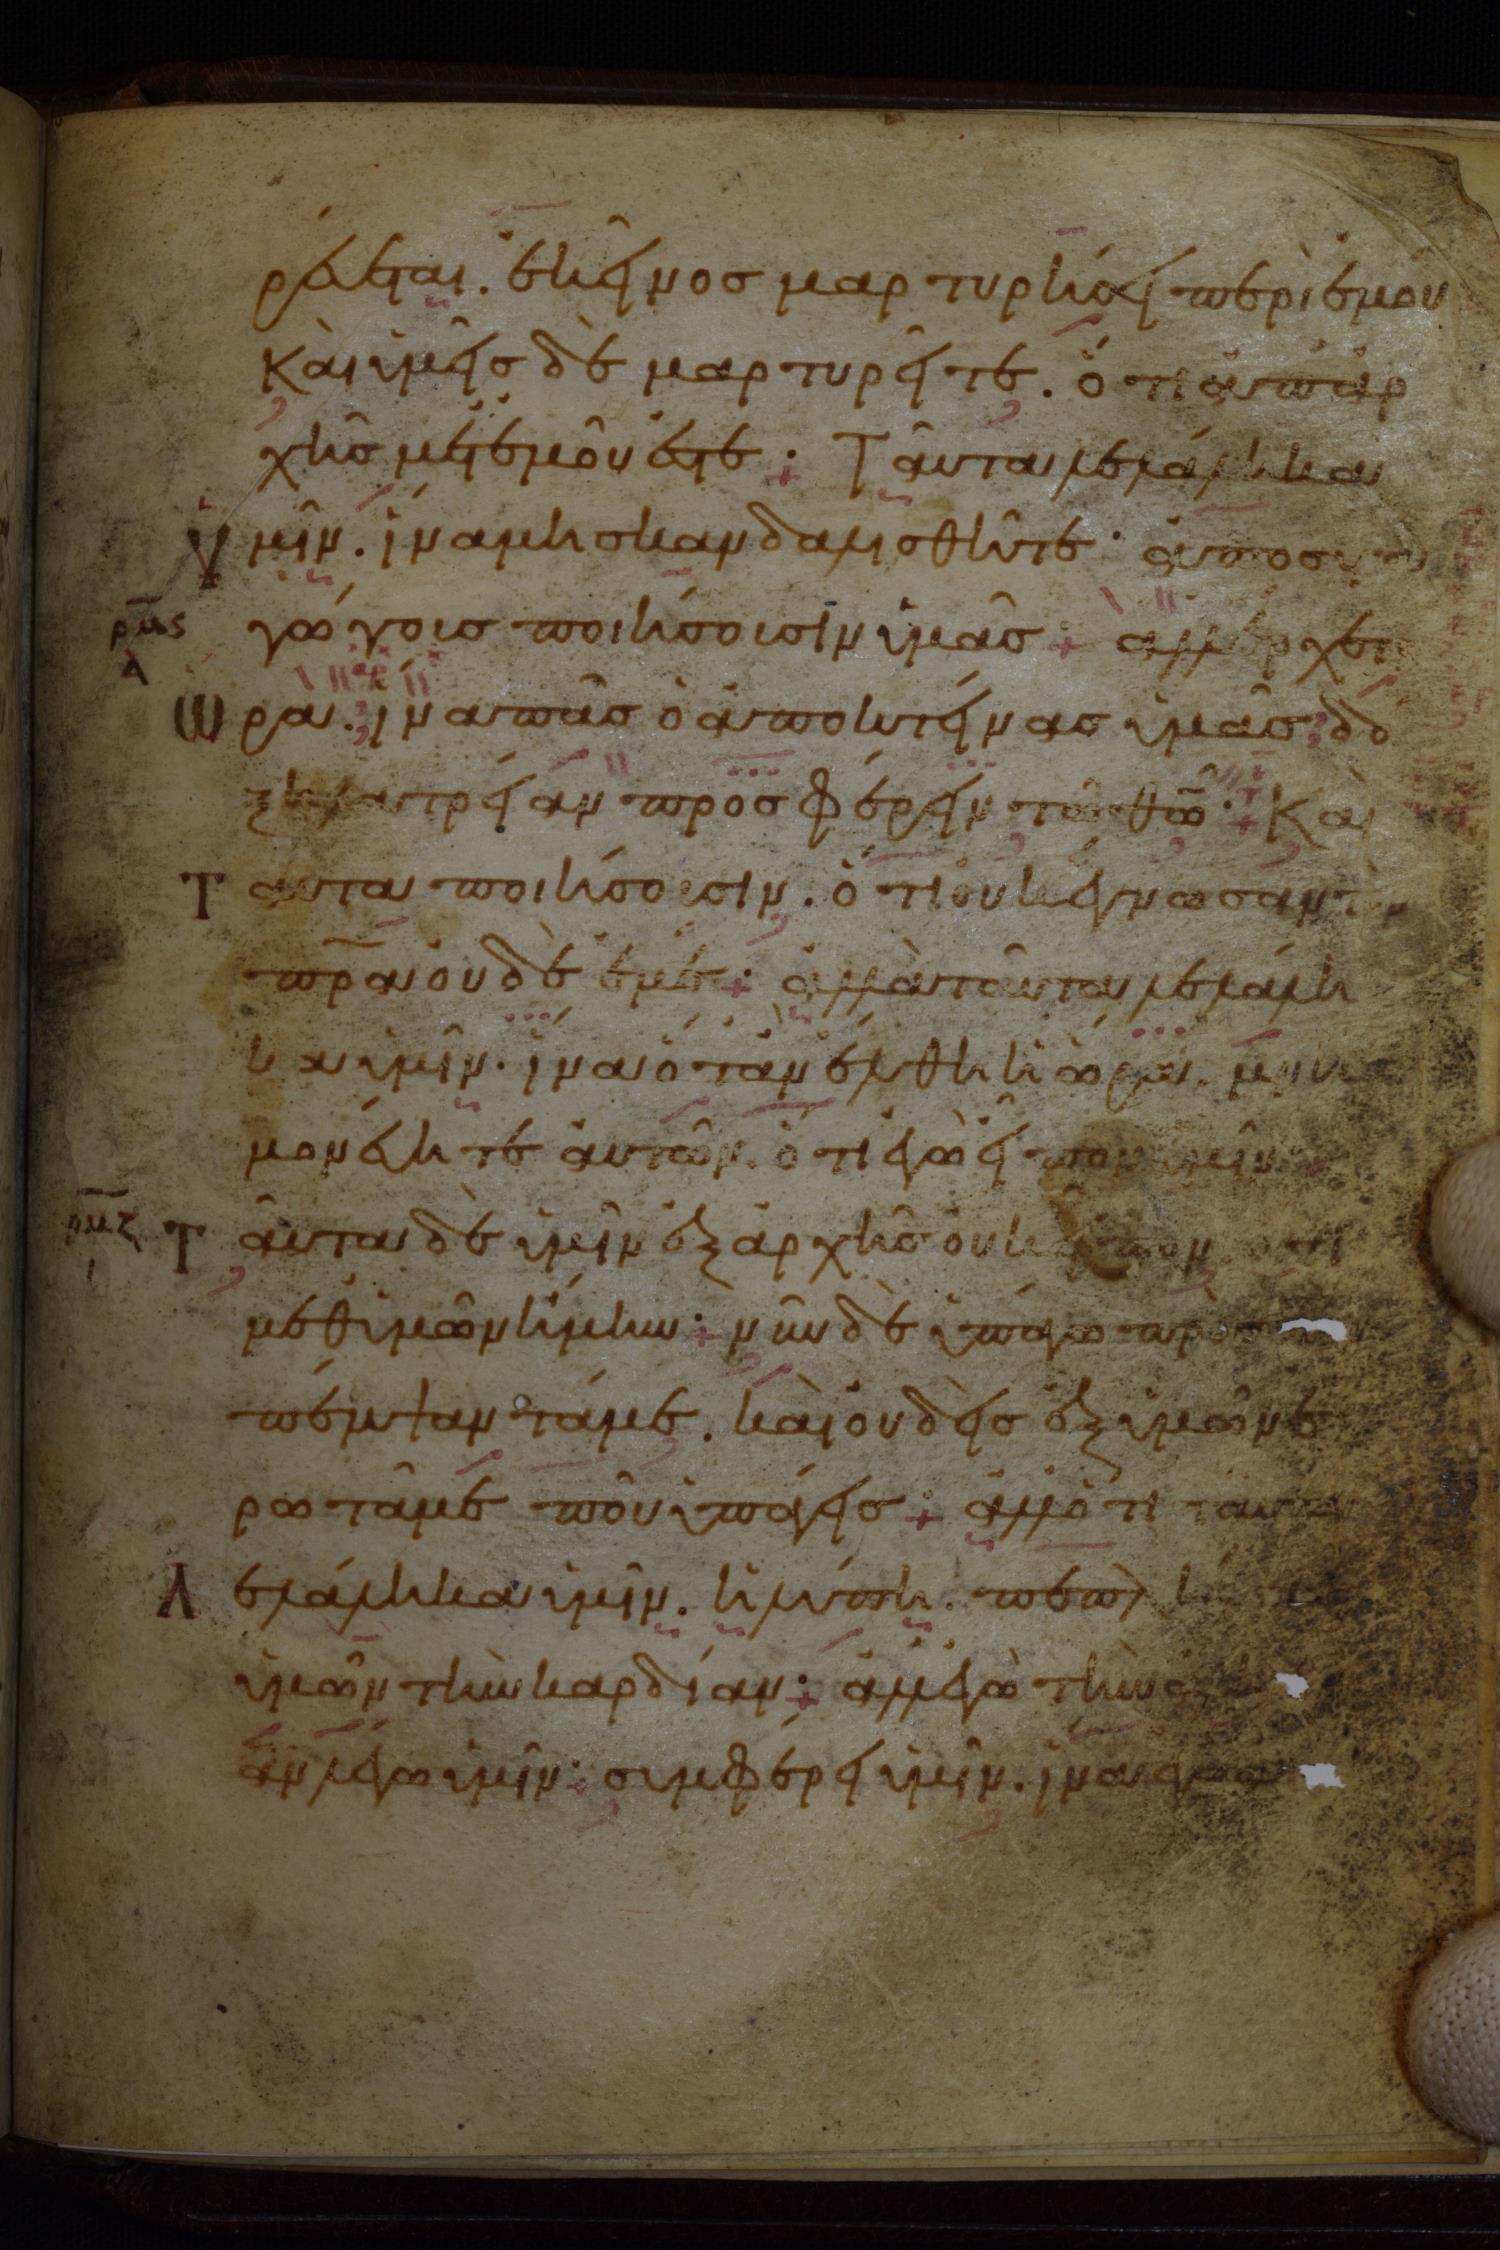 ρεύεται. ἐκεῖνος μαρτυρήσει περὶ ἐμοῦ
Καὶ ὑμεῖς δὲ μαρτυρεῖτε. ὅτι ἀπ ἀρ
χῆς μετ ἐμοῦ ἐστε· Ταῦτα λελάληκα
ὑμῖν. ἵνα μὴ σκανδαλισθῆτε· ἀποσυνα
ρμς γώγους ποιήσουσιν ὑμᾶς + ἀλλ ἔρχεται
α
Ὥρα. ἵνα πᾶς ὁ ἀποκτείνας ὑμᾶς δό
ξῃ λατρείαν προσφέρειν τῶ θω· Καὶ
Ταῦτα ποιήσουσιν. ὅτι οὐκ ἔγνωσαν τὸν
πρα οὐδὲ ἐμέ + ἀλλὰ ταῦτα λελάλη
κα ὑμῖν. ἵνα ὅταν ἔλθη ἡ ὥρα. μνη
μονεύητε αὐτῶν. ὅτι ἐγὼ εἶπον ὑμῖν
ρμζ Ταῦτα δὲ ὑμῖν ἐξ ἀρχῆς οὐκ εἶπον ὅτι
ι
μεθ ὑμῶν ἤμην + νῦν δὲ ὑπάγω πρὸς τὸν
πέμψαντά με. καὶ οὐδεὶς ἐξ ὑμῶν ἐ
ρωτᾶ με ποῦ ὑπάγεις + ἀλλ ὅτι ταῦτα
Λελάληκα ὑμῖν. ἡ λύπη πεπλ
ὑμῶν τὴν καρδίαν + ἀλλ ἐγὼ τὴν
ἀν λέγω ὑμῖν· συμφέρει ὑμῖν. ἵνα ἐγὼ